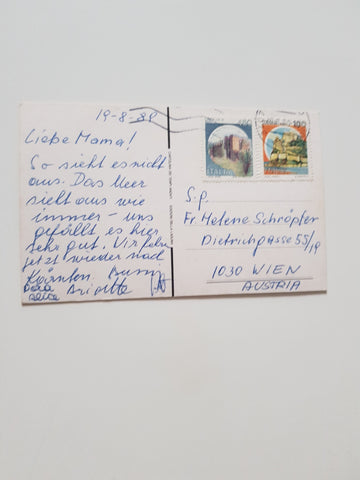 19-8-88
Liebe Mama!
So sieht es nicht
aus. Das Meer
sieht aus wie
immer - uns
gefällt es hier
sehr gut. Wir fahren
jetzt wieder nach
Kärnten. Bussi
Brigitte
ITALIA
ITALIA
S.p.
Fr Helene Schröpfer
Dietrichgasse 55/19
1030 WIEN
AUSTRIA